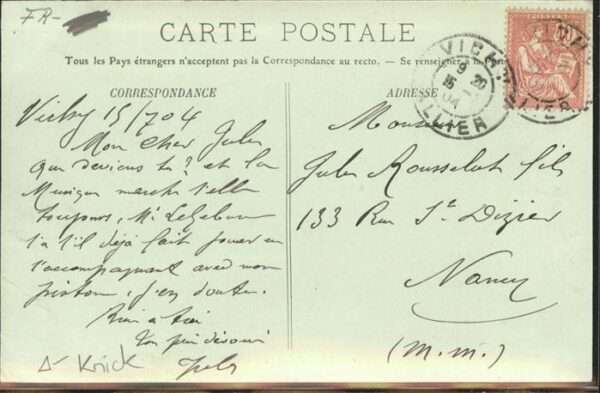 FR-
CARTE POSTALE
Tous les Pays étrangers n'acceptent pas la Correspondance au recto. — Se renseigner à la Poste
CORRESPONDANCE
ADRESSE
VICHY
9 20
15
04
ALLIER
Vichy 15/7 04
Mon cher Jules
Que deviens tu? et la
Musique marche t'elle
toujours, Mr
t'a t'il déjà fait jouer en
t'accompagnant avec mon
piston, j'en doute.
Rien à
Ton
Jules
Δ- Knick
Monsieur
Jules Rousselot fils
133 Rue St Dizier
Nancy
(M.M.)